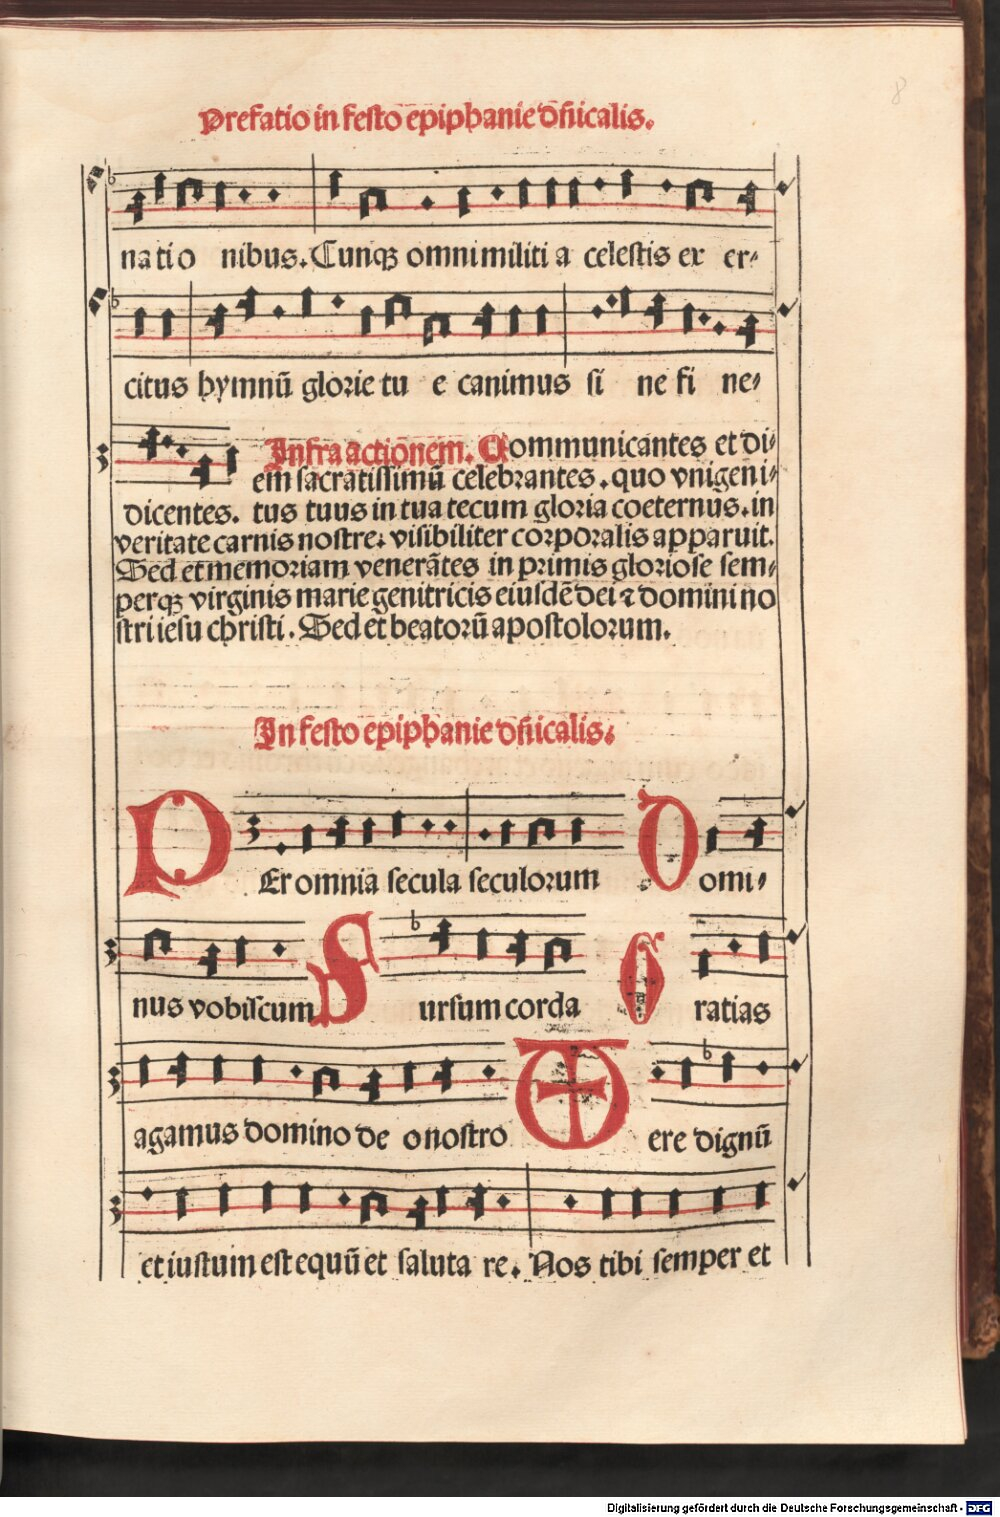 8
Prefatio in festo epiphanie dñicalis.
natio nibus. Cunqꝫ omni militi a celestis ex er⸗
citus hymnū glorie tu e canimus si ne fi ne⸗
Infra actionem. Communicantes et di⸗
em sacratissimū celebrantes. quo vnigeni⸗
dicentes. tus tuus in tua tecum gloria coeternus. in
veritate carnis nostre: visibiliter corporalis apparuit.
Sed et memoriam venerātes in primis gloriose sem⸗
perqꝫ virginis marie genitricis eiusdē dei ⁊ domini no
stri iesu christi. Sed et beatorū apostolorum.
In festo epiphanie dñicalis:
PEr omnia secula seculorum Domi⸗
nus vobiscum Sursum corda Gratias
agamus domino deo nostro Vere dignū
et iustum est equū et saluta re. Nos tibi semper et
Digitalisierung gefördert durch die Deutsche Forschungsgemeinschaft - DFG